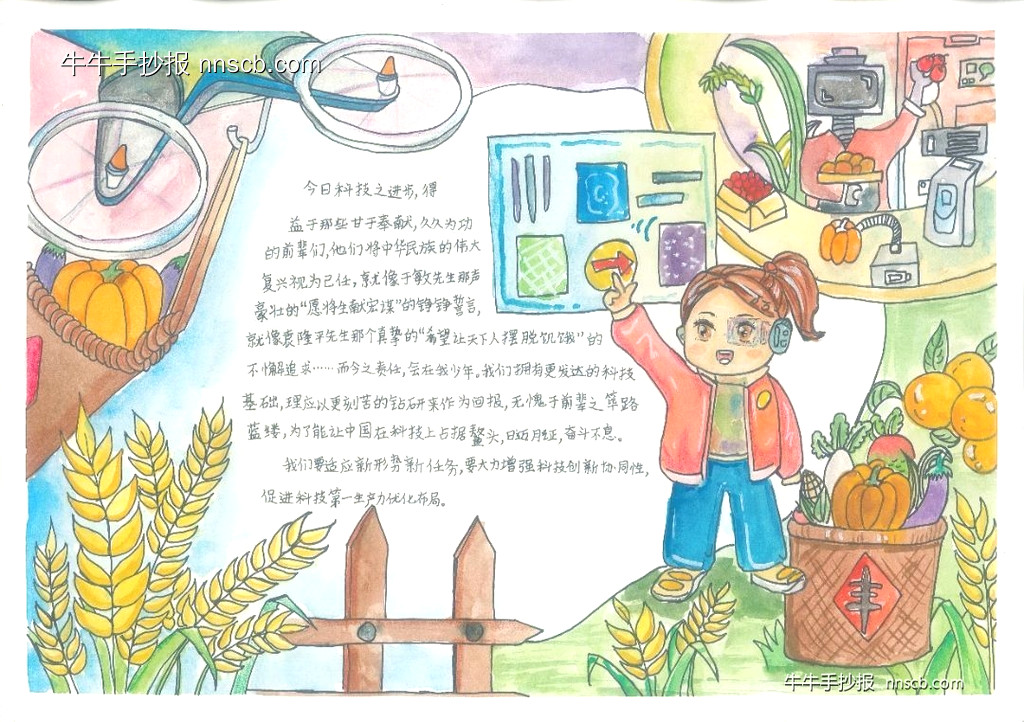 牛牛手抄报 nnscb.com
今日科技之进步,得
益于那些甘于奉献,久久为功
的前辈们,他们将中华民族的伟大
复兴视为己任,就像于敏先生那声
豪壮的“愿将生献宏谋”的铮铮誓言,
就像袁隆平先生那个真挚的“希望让天下人摆脱饥饿”的
不懈追求……而今之责任,会在我少年。我们拥有更发达的科技
基础,理应以更刻苦的钻研来作为回报,无愧于前辈之筚路
蓝缕,为了能让中国在科技上占据鳌头,日迈月征,奋斗不息。
我们要适应新形势新任务,要大力增强科技创新协同性,
促进科技第一生产力优化布局。
丰
牛牛手抄报 nnscb.com